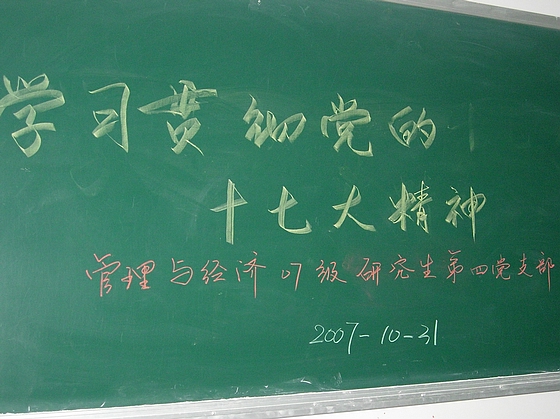 学习贯彻党的
十七大精神
管理与经济07级研究生第四党支部
2007-10-31